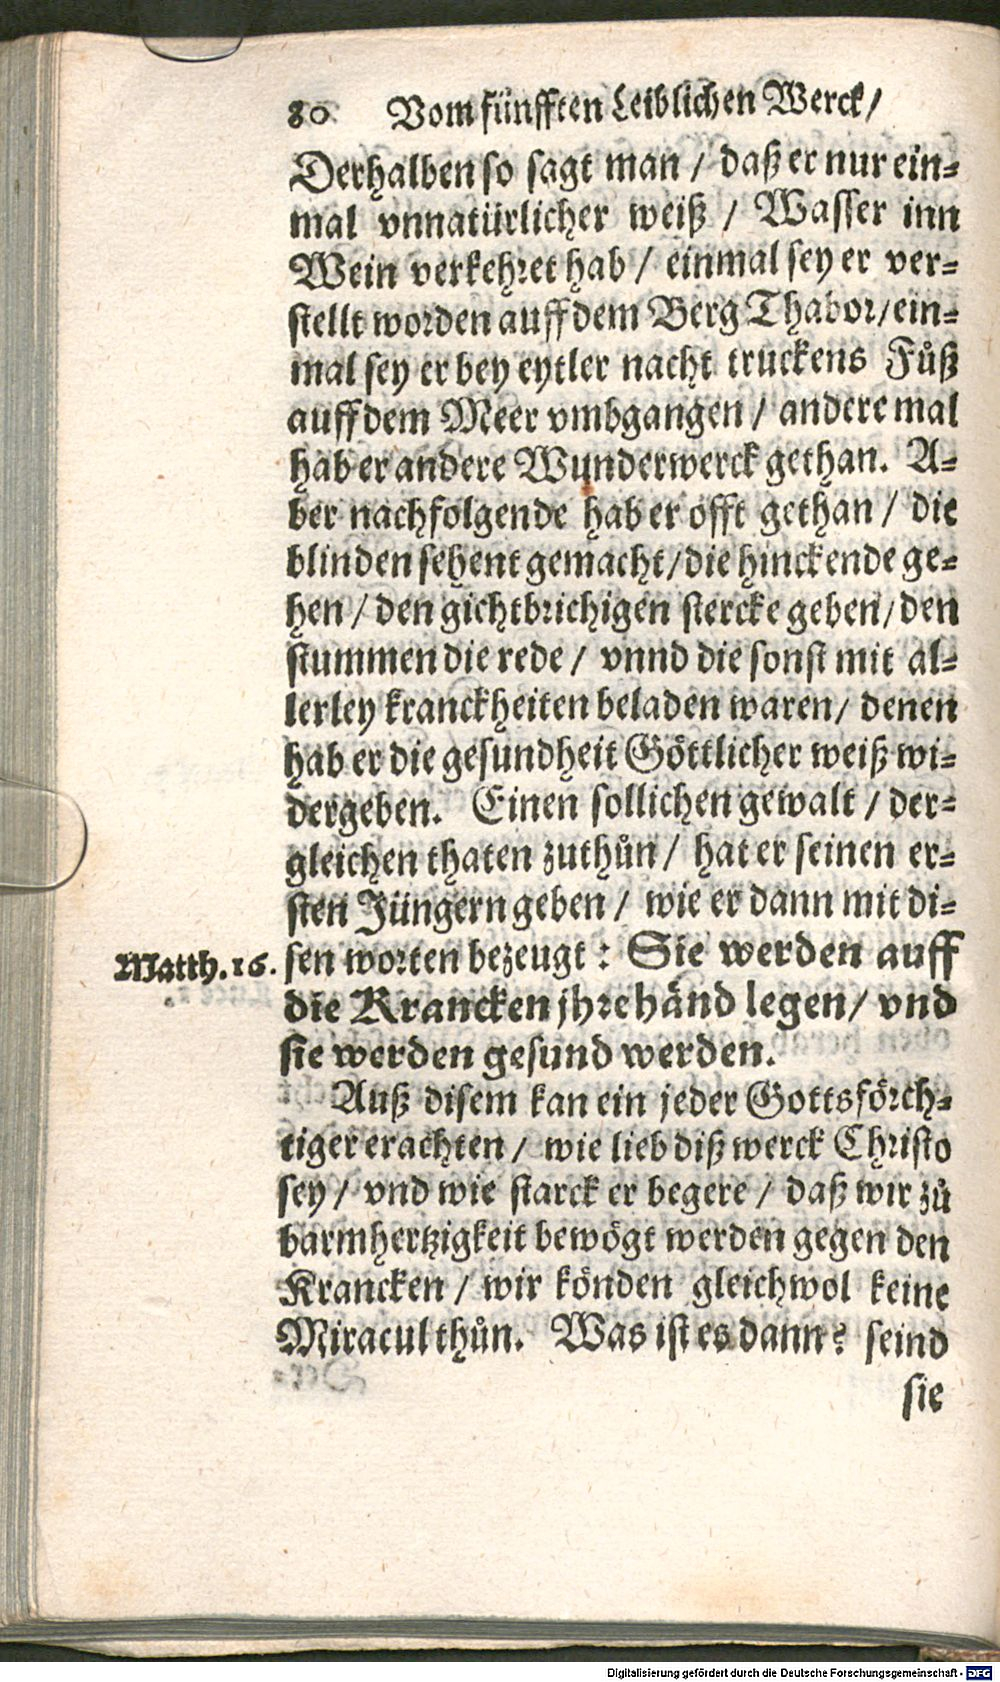 80 Vom fünfften Leiblichen Werck/
Derhalben so sagt man / daß er nur ein-
mal vnnatürlicher weiß / Wasser inn
Wein verkehret hab / einmal sey er ver-
stellt worden auff dem Berg Thabor/ein-
mal sey er bey eytler nacht truckens Fůß
auff dem Meer vmbgangen / andere mal
hab er andere Wunderwerck gethan. A-
ber nachfolgende hab er offt gethan / die
blinden sehent gemacht/die hinckende ge-
hen / den gichtbrichigen stercke geben/den
stummen die rede / vnnd die sonst mit al-
lerley kranckheiten beladen waren/ denen
hab er die gesundheit Göttlicher weiß wi-
dergeben. Einen sollichen gewalt / der-
gleichen thaten zuthůn / hat er seinen er-
sten Jüngern geben / wie er dann mit di-
Matth.16. sen worten bezeugt : Sie werden auff
die Krancken jhre händ legen/ vnd
sie werden gesund werden.
Auß disem kan ein jeder Gottsförch-
tiger erachten / wie lieb diß werck Christo
sey / vnd wie starck er begere / daß wir zů
barmhertzigkeit bewögt werden gegen den
Krancken / wir könden gleichwol keine
Miracul thůn. Was ist es dann? seind
sie
Digitalisierung gefördert durch die Deutsche Forschungsgemeinschaft - DFG